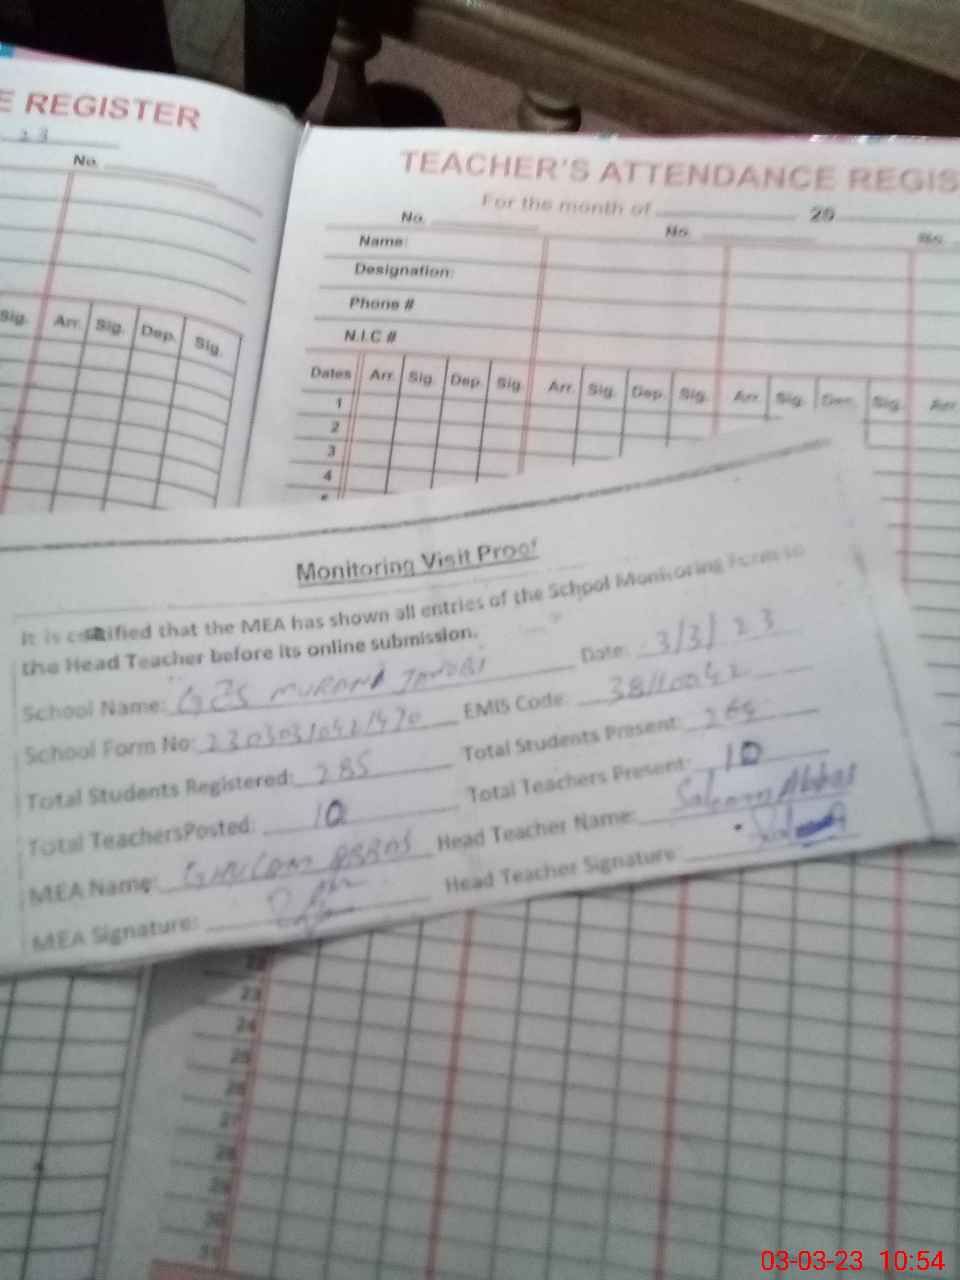 E REGISTER
23
No.
Sig. Arr. Sig. Dep. Sig.
TEACHER'S ATTENDANCE REGIS
For the month of 20
No. No. No.
Name:
Designation:
Phone #
N.I.C #
Dates Arr. Sig. Dep. Sig. Arr. Sig. Dep. Sig. Arr. Sig. Dep. Sig. Arr.
1
2
3
4
Monitoring Visit Proof
It is certified that the MEA has shown all entries of the School Monitoring Form to
the Head Teacher before its online submission.
School Name: Date: 3/3/23
School Form No: EMIS Code: 38110042
Total Students Registered: 285 Total Students Present:
Total TeachersPosted: 10 Total Teachers Present: 10
MEA Name: Head Teacher Name: Abbas
MEA Signature: Head Teacher Signature:
23
24
25
26
27
28
29
30
31
03-03-23 10:54